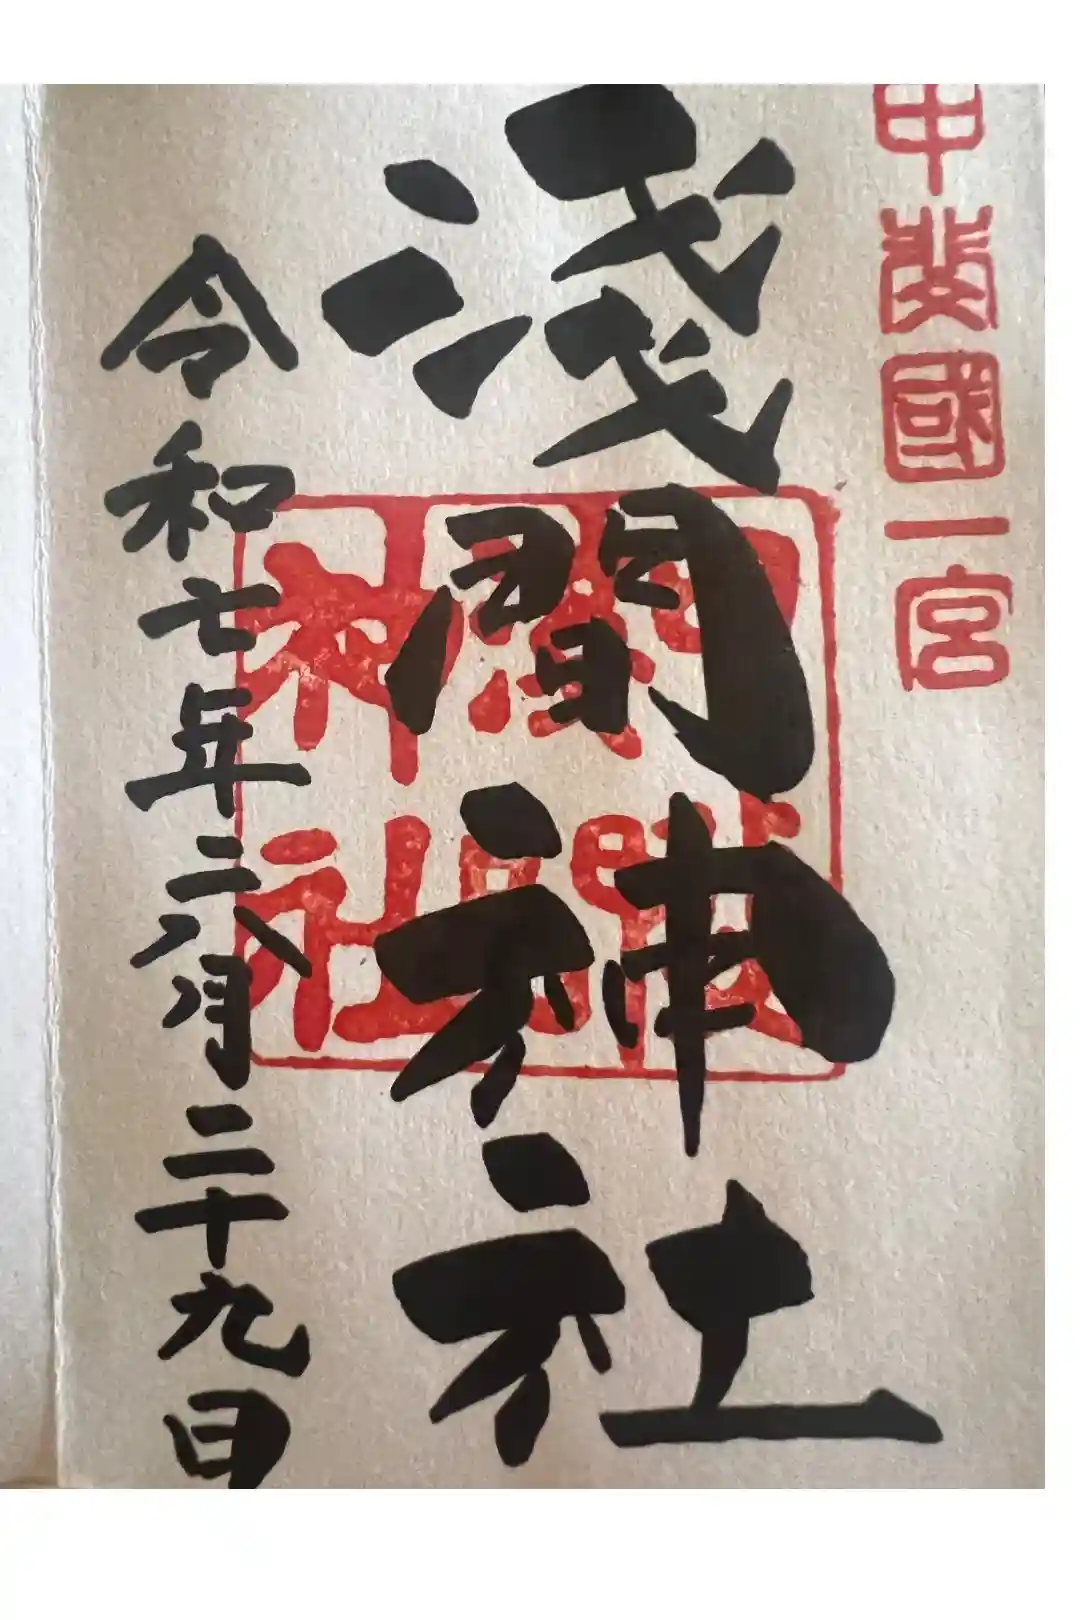 甲斐國一宮
淺間神社
令和七年六月二十九日